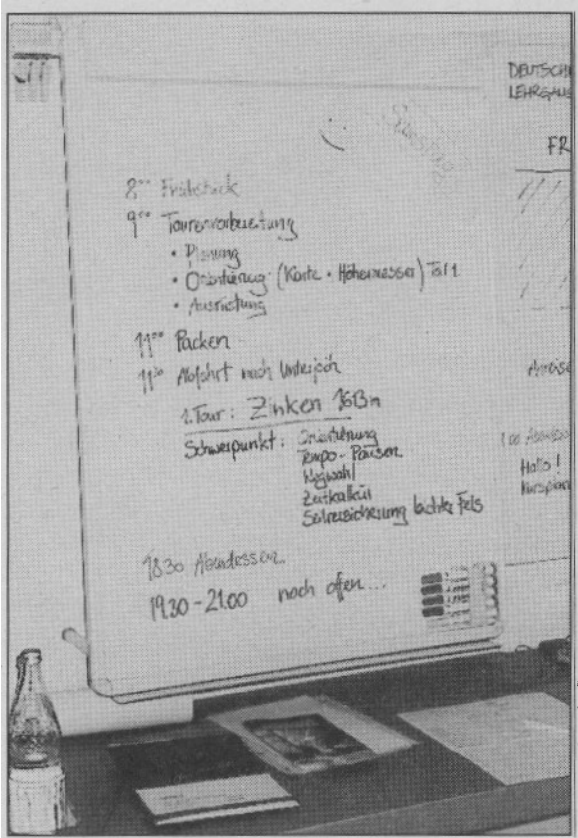 Samstag
8⁰⁰ Frühstück
9⁰⁰ Tourenvorbereitung
• Planung
• Orientierung (Karte + Höhenmesser) Teil 1
• Ausrüstung
11⁰⁰ Packen
11³⁰ Abfahrt nach Unterjoch
1. Tour: Zinken 1613m
Schwerpunkt: Orientierung
Tempo - Pausen
Wegwahl
Zeitkalkül
Seilversicherung leichter Fels
18.30 Abendessen
19.30 - 21.00 noch offen...
DEUTSCH
LEHRGANG
FR
Anreise
Hallo!
Kursplan